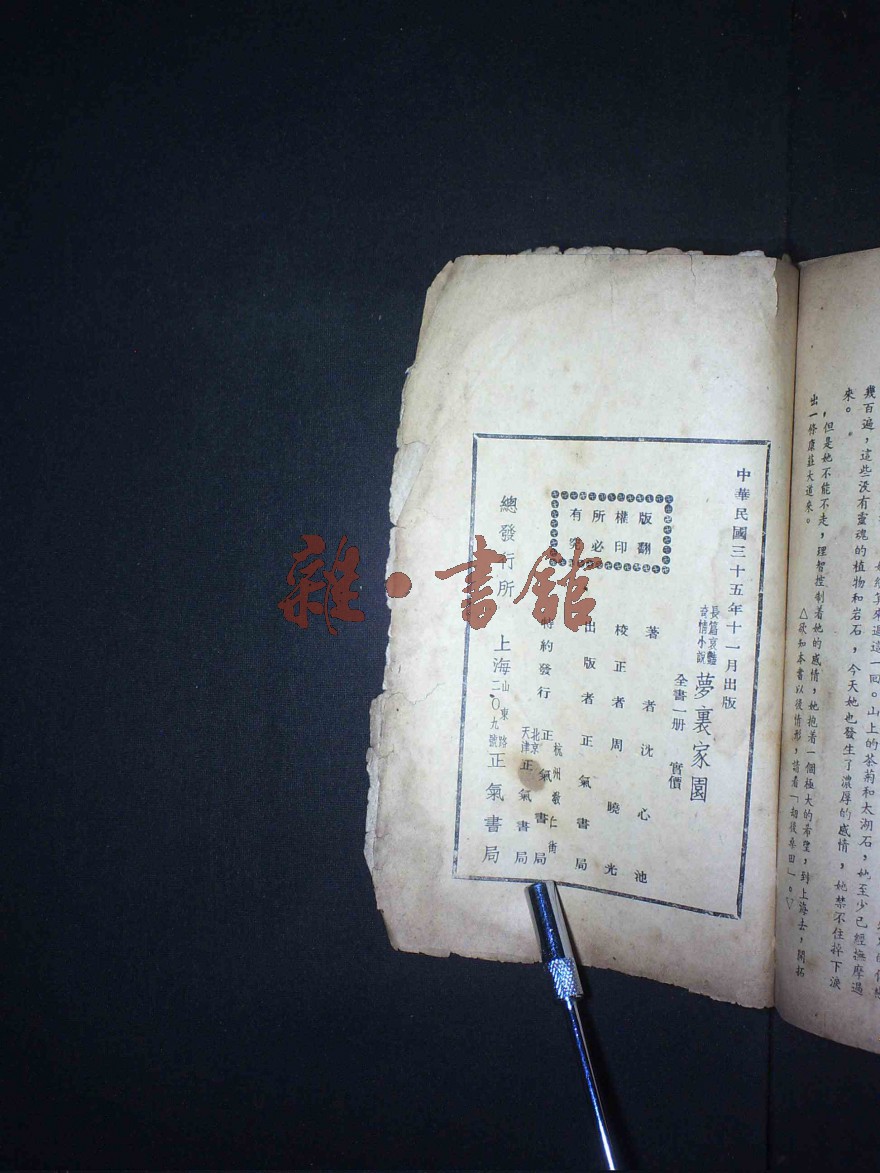 幾百遍,這些没有靈魂的植物和岩石,今天她也發生了濃厚的感情,她禁不住掉下淚
來。
,但是她不能不走,理智控制着她的感情,她抱着一個極大的希望,到上海去,開拓
出一條康莊大道來。
△欲知本書以後情形,請看「劫後桑田」。▽
中華民國三十五年十一月出版
長篇哀艷
奇情小說
夢裏家園
全書一册 實價
版權所有
翻印必究
著者 沈心池
校正者 周曉光
出版者 正氣書局
特約發行
杭州敬仁街
正氣書局
北京
天津 正氣書局
總發行所 上海山東路二〇九號 正氣書局
雜·書館